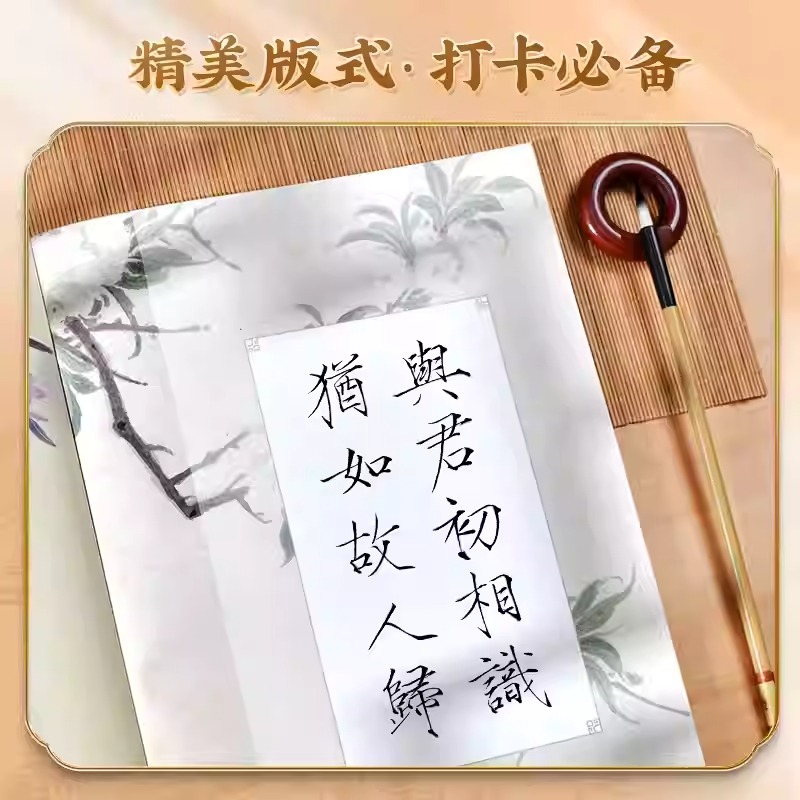 精美版式·打卡必备
與君初相識
猶如故人歸